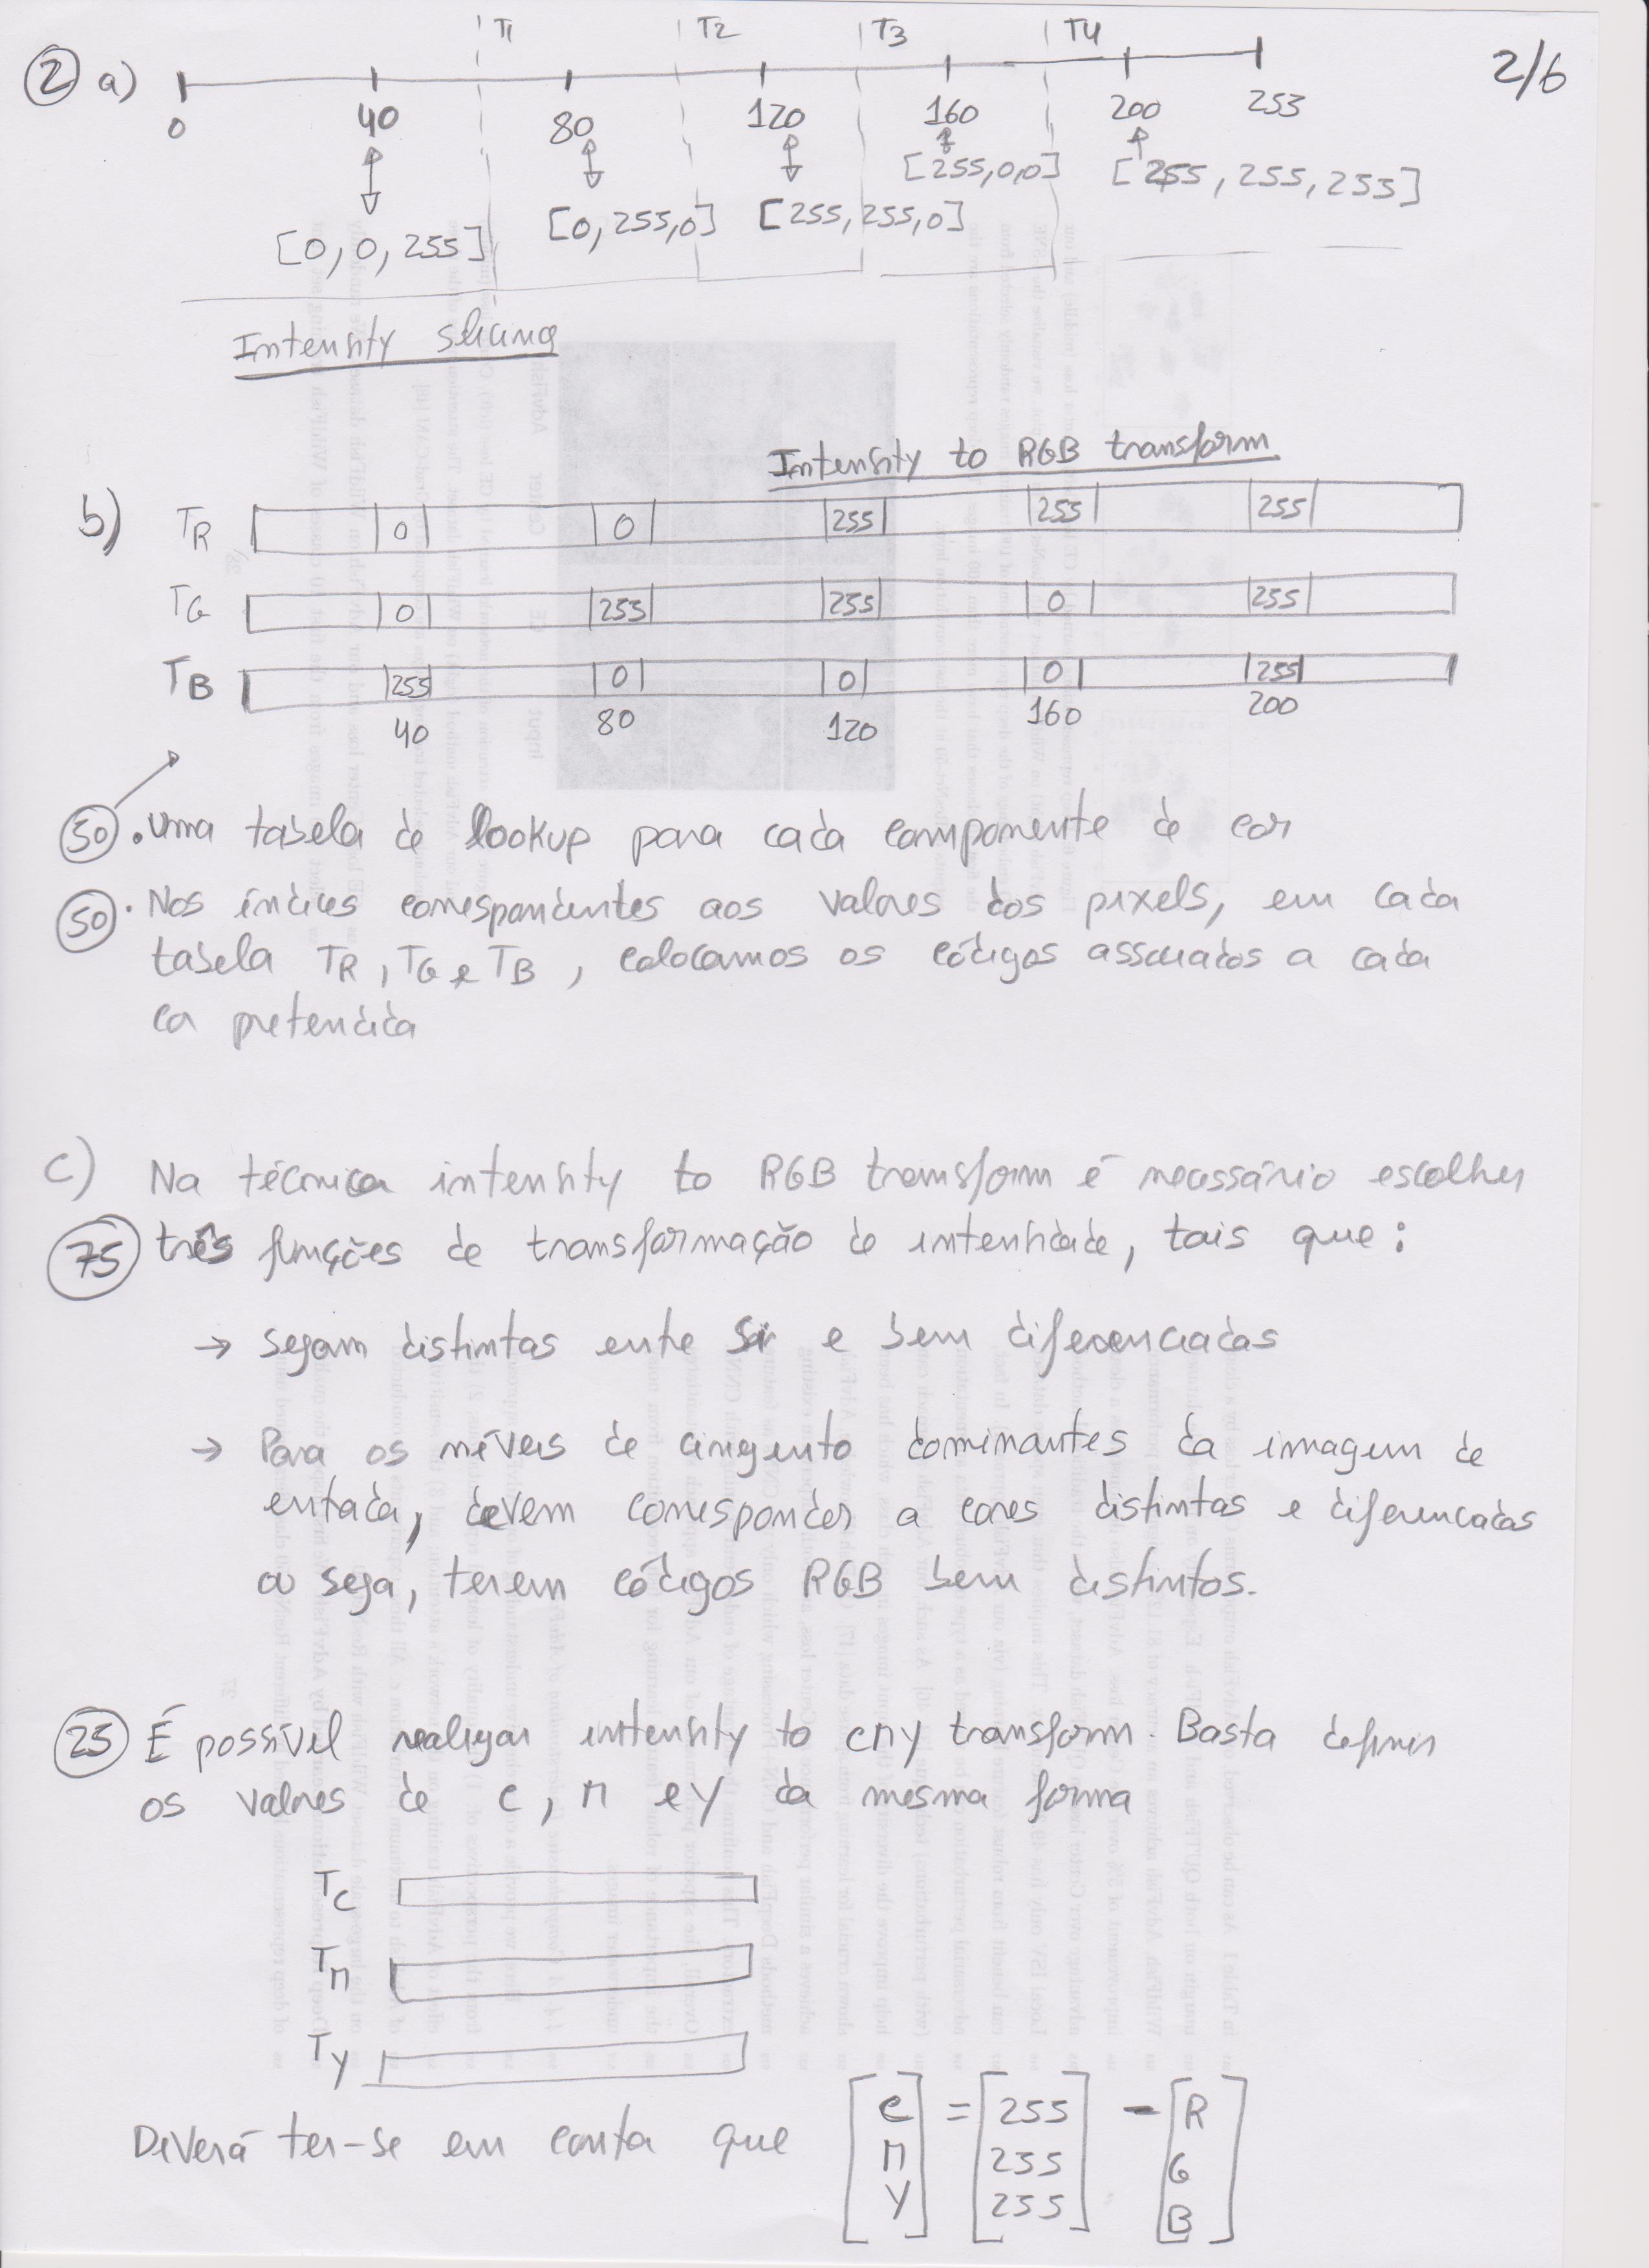 2/6
② a) T1 T2 T3 T4
0 40 80 120 160 200 253
[0, 0, 255] [0, 255, 0] [255, 255, 0] [255, 0, 0] [255, 255, 255]
Intensity slicing
Intensity to RGB transform
b) TR 0 0 255 255 255
TG 0 255 255 0 255
TB 255 0 0 0 255
40 80 120 160 200
50 . uma tabela de lookup para cada componente de cor
50 . Nos índices correspondentes aos valores dos pixels, em cada
tabela TR, TG e TB, colocamos os códigos associados a cada
cor pretendida
c) Na técnica intensity to RGB transform é necessário escolher
75 três funções de transformação de intensidade, tais que:
→ sejam distintas entre si e bem diferenciadas
→ Para os níveis de cinzento dominantes da imagem de
entrada, devem corresponder a cores distintas e diferenciadas
ou seja, terem códigos RGB bem distintos.
25 É possível realizar intensity to CMY transform. Basta definir
os valores de C, M e Y da mesma forma
TC
TM
TY
Deverá ter-se em conta que [C M Y] = [255 255 255] - [R G B]